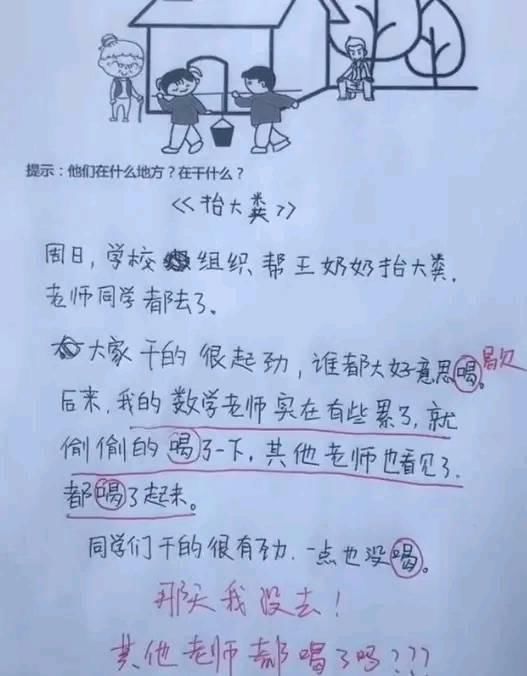 提示：他们在什么地方？在干什么？
《抬大粪》
周日，学校组织帮王奶奶抬大粪.
老师同学都去了.
大家干的很起劲，谁都大好意思喝。歇
后来，我的数学老师实在有些累了，就
偷偷的喝了一下，其他老师也看见了.
都喝了起来。
同学们干的很有劲.一点也没喝。
那天我没去！
其他老师都喝了吗？？？